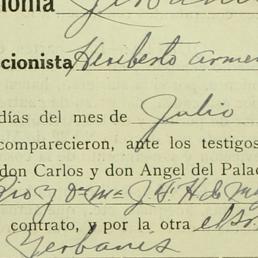 onia
ccionista Heriberto Armen
días del mes de Julio
comparecieron, ante los testigos
don Carlos y don Angel del Palac
Río y Dª Mª J. Sª H. de M
contrato, y por la otra el Sr.
Yerbanis